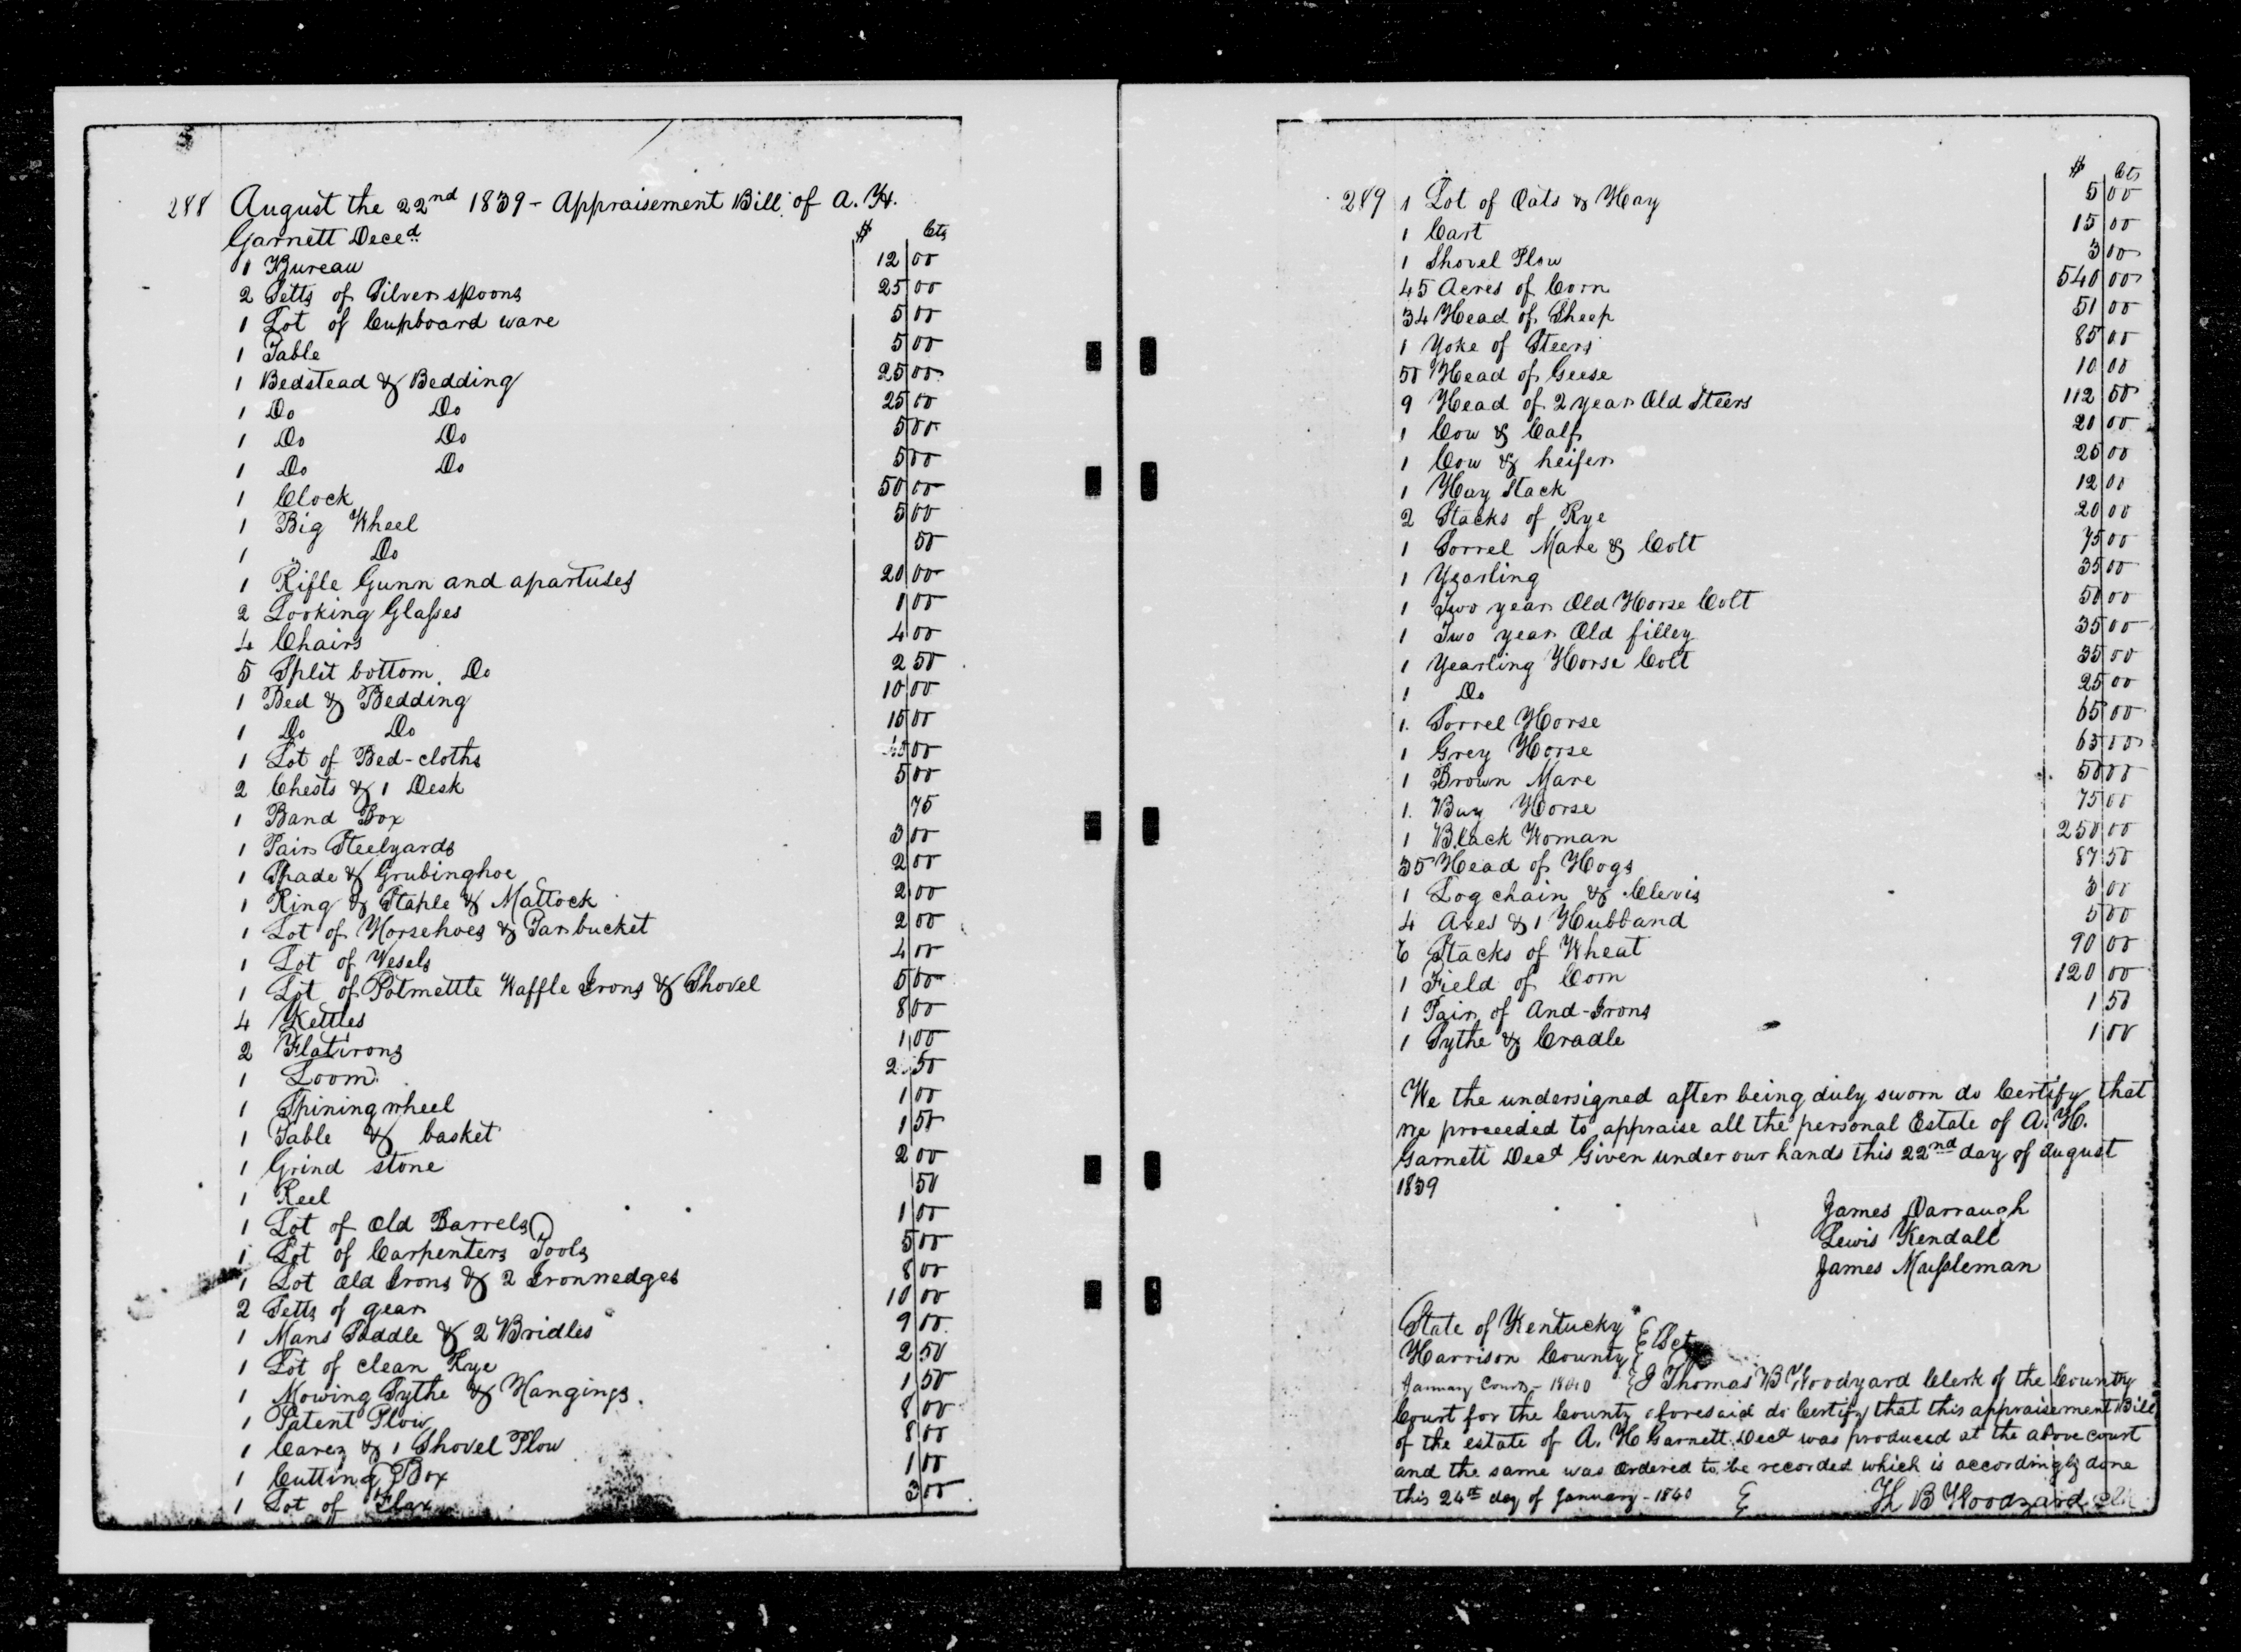 288 August the 22nd 1839 - Appraisement Bill of A. H.
Garnett Deced $ Cts
1 Bureau 12 00
2 Setts of Silver spoons 25 00
1 Lot of Cupboard ware 5 00
1 Table 5 00
1 Bedstead & Bedding 25 00
1 Do Do 25 00
1 Do Do 5 00
1 Do Do 5 00
1 Clock 50 00
1 Big Wheel 5 00
1 Do 50
1 Rifle Gunn and apartuses 20 00
2 Looking Glasses 1 00
4 Chairs 4 00
5 Split bottom Do 2 50
1 Bed & Bedding 10 00
1 Do Do 15 00
1 Lot of Bed-cloths 00
2 Chests & 1 Desk 5 00
1 Band Box 75
1 Pair Steelyards 3 00
1 Spade & Grubinghoe 2 00
1 Ring & Staple & Mattock 2 00
1 Lot of Horsehoes & Tarbucket 2 00
1 Lot of Vesels 4 00
1 Lot of Potmettle Waffle Irons & Shovel 5 00
4 Kettles 8 00
2 Flatirons 1 00
1 Loom 2 50
1 Spiningwheel 1 00
1 Table & basket 1 50
1 Grind stone 2 00
1 Reel 50
1 Lot of Old Barrels 1 00
1 Lot of Carpenters Tools 5 00
1 Lot Old Irons & 2 Ironwedges 8 00
2 Setts of gear 10 00
1 Mans Saddle & 2 Bridles 9 00
1 Lot of clean Rye 2 50
1 Mowing Sythe & Hangings 1 50
1 Patent Plow 8 00
1 Carey & 1 Shovel Plow 8 00
1 Cutting Box 1 00
1 Lot of Flax 3 00
$ Cts
289 1 Lot of Oats & Hay 5 00
1 Cart 15 00
1 Shovel Plow 3 00
45 Acres of Corn 540 00
34 Head of Sheep 51 00
1 Yoke of Steers 85 00
50 Head of Geese 10 00
9 Head of 2 year Old Steers 112 50
1 Cow & Calf 20 00
1 Cow & heifer 25 00
1 Hay Stack 12 00
2 Stacks of Rye 20 00
1 Sorrel Mare & Colt 75 00
1 Yearling 35 00
1 Two year Old Horse Colt 50 00
1 Two year Old filley 35 00
1 Yearling Horse Colt 35 00
1 Do 25 00
1. Sorrel Horse 65 00
1 Grey Horse 65 00
1 Brown Mare 50 00
1. Bay Horse 75 00
1 Black Woman 250 00
35 Head of Hogs 87 50
1 Log chain & Clevis 3 00
4 Axes & 1 Hubband 5 00
6 Stacks of Wheat 90 00
1 Field of Corn 120 00
1 Pair of And-Irons 1 50
1 Sythe & Cradle 1 00
We the undersigned after being duly sworn do Certify that
we proceeded to appraise all the personal Estate of A. H.
Garnett Decd Given under our hands this 22nd day of August
1839
James Darraugh
Lewis Kendall
James Mussleman
State of Kentucky
Harrison County Sct
January Court - 1840 I Thomas B Woodyard Clerk of the County
Court for the County aforesaid do Certify that this appraisement Bill
of the estate of A. H Garnett Decd was produced at the above court
and the same was ordered to be recorded which is accordingly done
this 24th day of January - 1840 Th B Woodyard clk